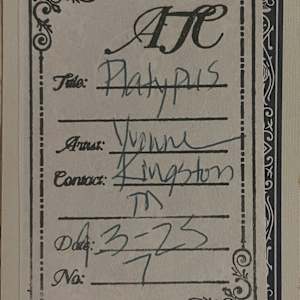 ATC
Title: Platypus
Artist: Yvonne
Contact: Kingston
TN
Date: 9-3-25
No: 7